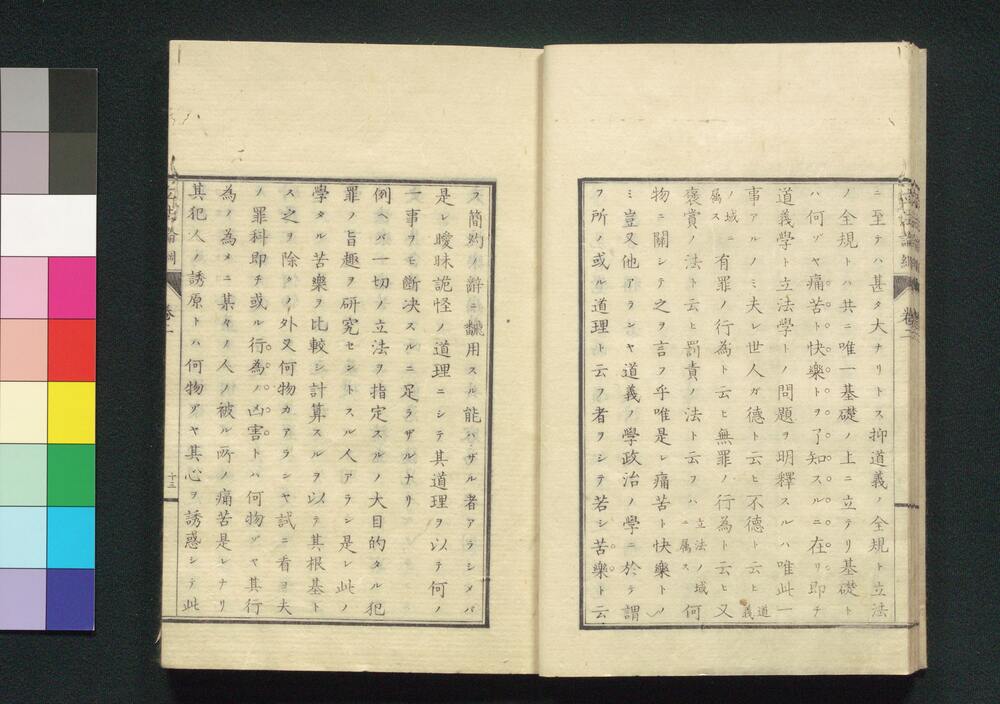 ニ至テハ甚タ大ナリトス抑道義ノ全規ト立法
ノ全規トハ共ニ唯一基礎ノ上ニ立テリ基礎ト
ハ何ゾヤ痛苦ト快樂トヲ了知スルニ在リ即チ
道義學ト立法學トノ問題ヲ明釋スルハ唯此一
事アルノミ夫レ世人ガ徳ト云ヒ不德ト云ヒ道義
ノ域ニ属ス有罪ノ行為ト云ヒ無罪ノ行為ト云ヒ又
褒賞ノ法ト云ヒ罰責ノ法ト云フハ立法ノ域ニ属ス何
物ニ關シテ之ヲ言フ乎唯是レ痛苦ト快樂トノ
ミ豈又他アランヤ道義ノ學政治ノ學ニ於テ謂
フ所ノ或ル道理ト云フ者ヲシテ若シ苦樂ト云
フ簡約ノ辭ニ飜用スル能ハザル者アラシメバ
是レ曖昧詭怪ノ道理ニシテ其道理ヲ以テ何ノ
一事ヲモ斷决スルニ足ラザルナリ
例ヘバ一切ノ立法ヲ指定スルノ大目的タル犯
罪ノ旨趣ヲ研究セントスル人アランニ是レ此ノ
學タル苦樂ヲ比較シ計算スルヲ以テ其根基ト
ス之ヲ除クノ外又何物カアランヤ試ニ看ヨ夫
ノ罪科即チ或ル行為ノ凶害トハ何物ゾヤ其行
為ノ為メニ某々ノ人ノ被ル所ノ痛苦是レナリ
其犯人ノ誘原トハ何物ゾヤ其心ヲ誘惑シテ此
卷二
十三